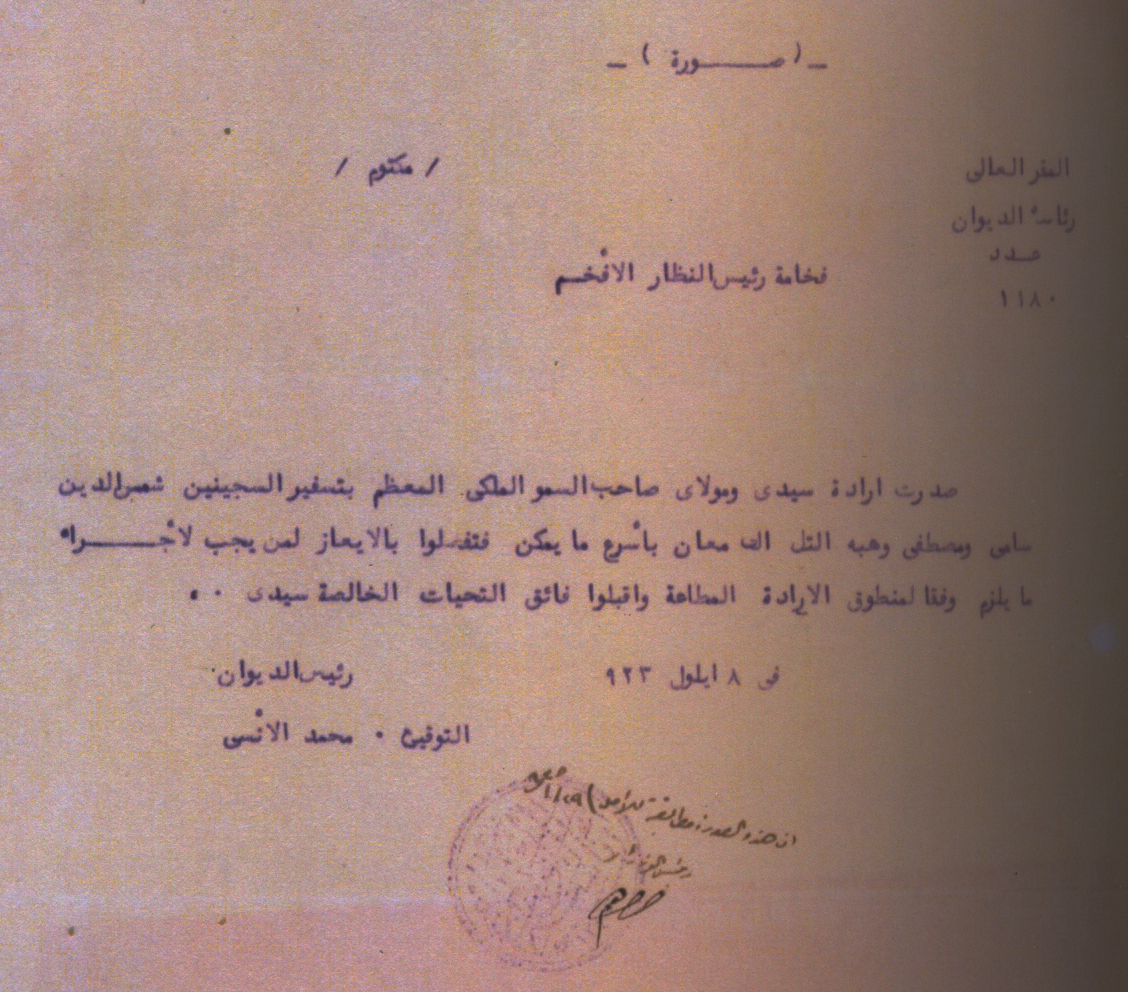 ـ( صـــــورة ) ـ
/ مكتوم /
المقر العالى
رئاسة الديوان
عـدد
١١٨٠
فخامة رئيس النظار الافخـم
صدرت ارادة سيدى ومولاى صاحب السمو الملكى المعظم بتسفير السجينين شمس الدين
سامى ومصطفى وهبه التل الى معان بأسرع ما يمكن فتفضلوا بالايعاز لمن يجب لأجـــراء
ما يلزم وفقا لمنطوق الارادة المطاعة واقبلوا فائق التحيات الخالصة سيدى ٠٠
فى ٨ ايلول ٩٢٣
رئيس الديوان
التوقيع ٠ محمد الانسى
ان هذه الصورة مطابقة للاصل